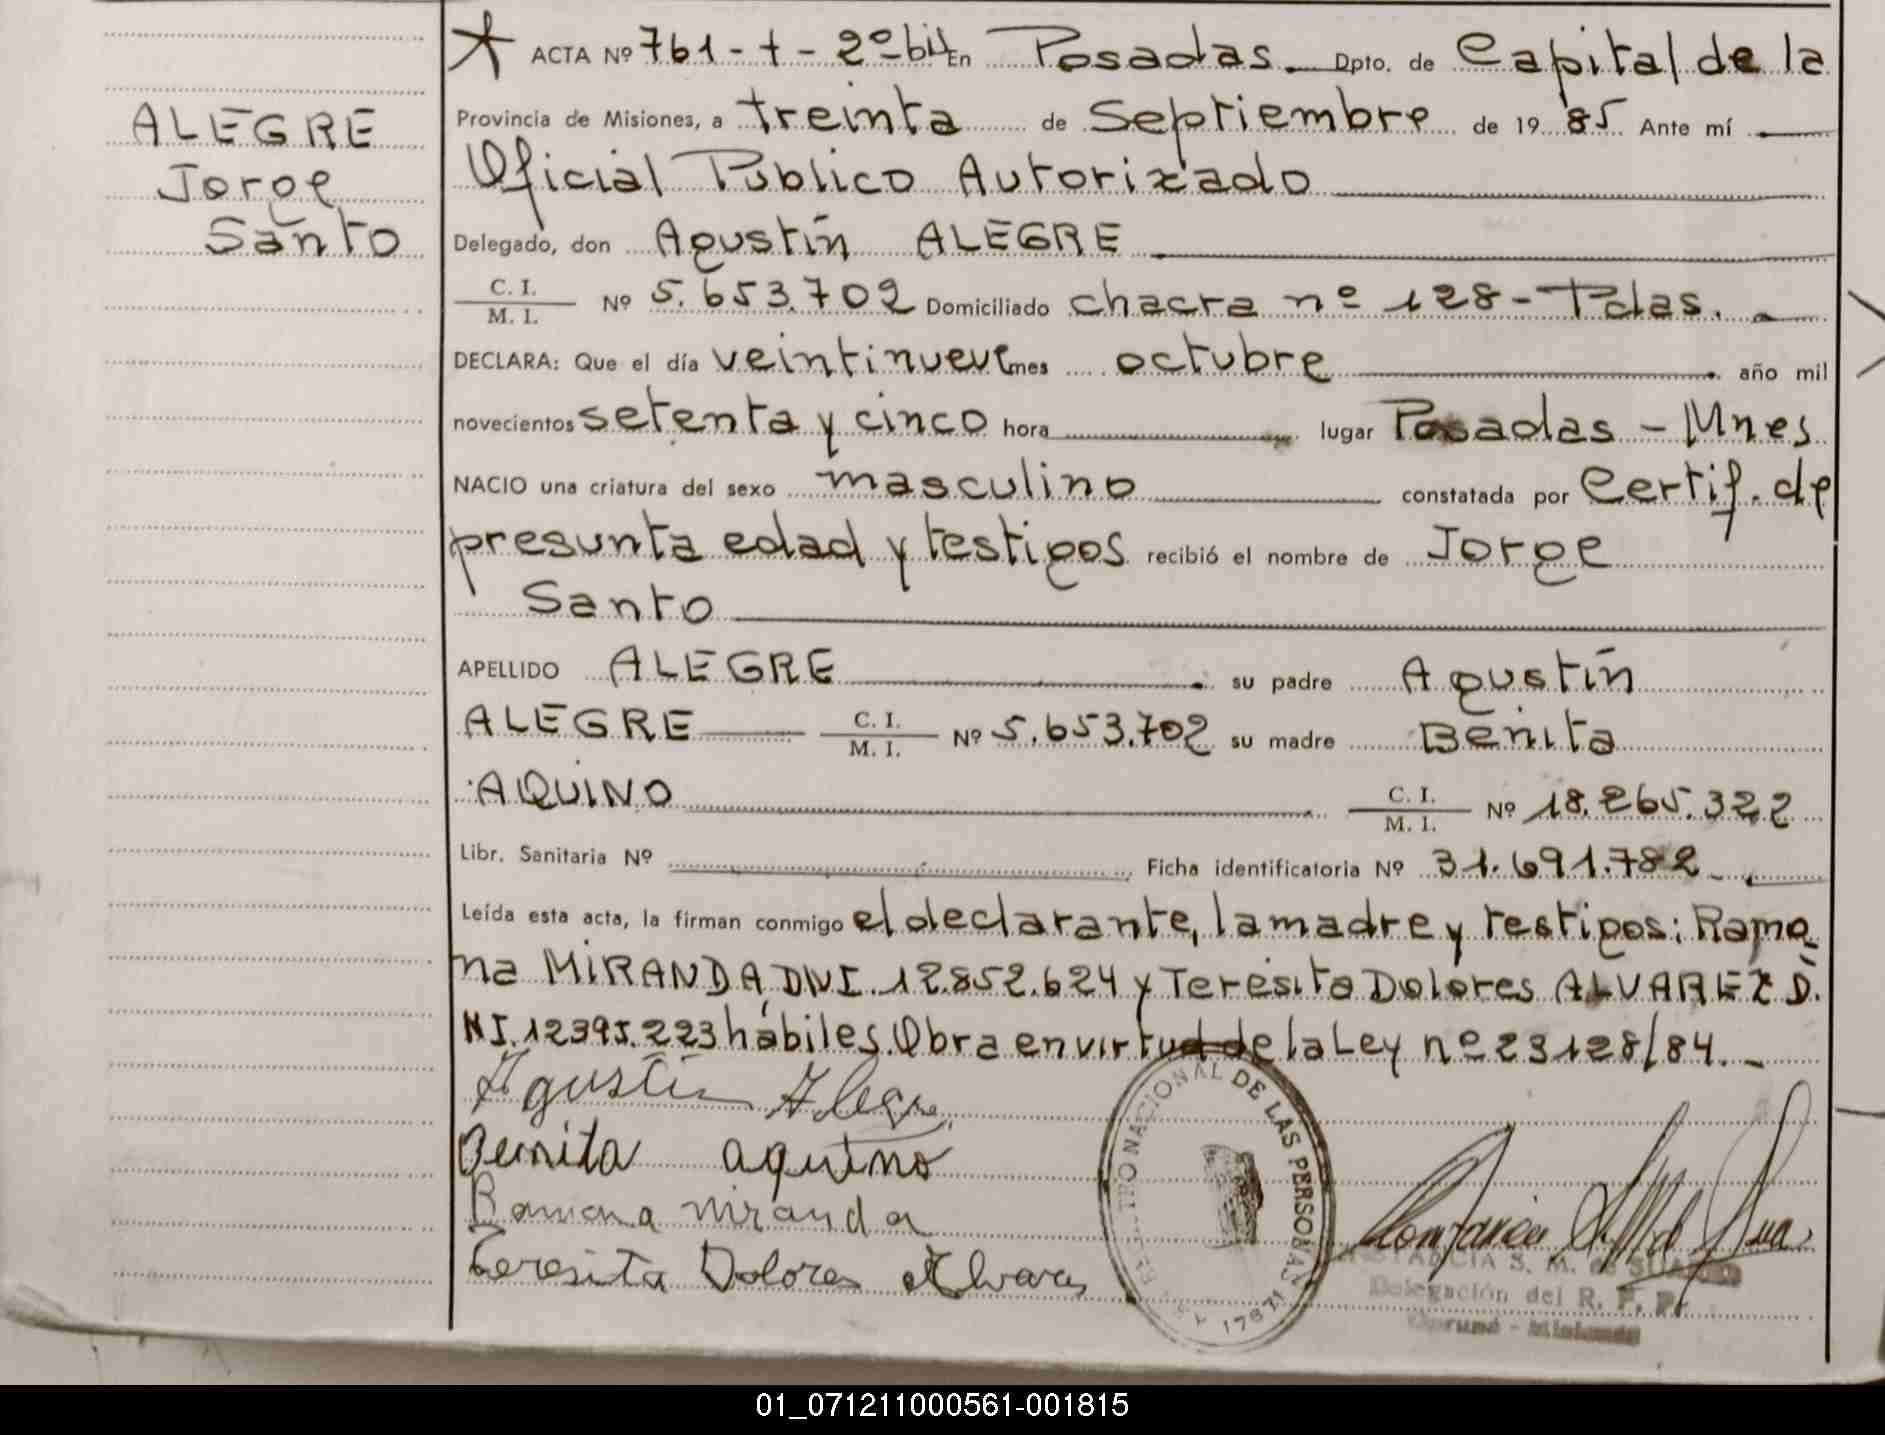 ALEGRE
Jorge
Santo
ACTA Nº 761-t-2º bis En Posadas. Dpto. de Capital de la
Provincia de Misiones, a treinta de Septiembre de 19 85 Ante mí
Oficial Público Autorizado
Delegado, don Agustín ALEGRE
C. I.
M. I. Nº 5.653.702 Domiciliado chacra nº 128 - Pdas.
DECLARA: Que el día veintinueve mes octubre año mil
novecientos setenta y cinco hora lugar Posadas - Mnes
NACIO una criatura del sexo masculino constatada por Certif. de
presunta edad y testigos recibió el nombre de Jorge
Santo
APELLIDO ALEGRE su padre Agustín
ALEGRE C. I. M. I. Nº 5.653.702 su madre Benita
AQUINO C. I. M. I. Nº 18.265.322
Libr. Sanitaria Nº Ficha identificatoria Nº 31.691.782
Leída esta acta, la firman conmigo el declarante, la madre y testigos: Ramo
na MIRANDA, DNI. 12.852.624 y Teresita Dolores ALVAREZ D.
NI. 12395.223 hábiles. Obra en virtud de la Ley nº 23128/84.
Agustín Alegre
Benita aquino
Ramona Miranda
Teresita Dolores Alvarez
NACIONAL DE LAS PERSONAS
17671
S. M. de
Delegación del R. P. P.
01_071211000561-001815